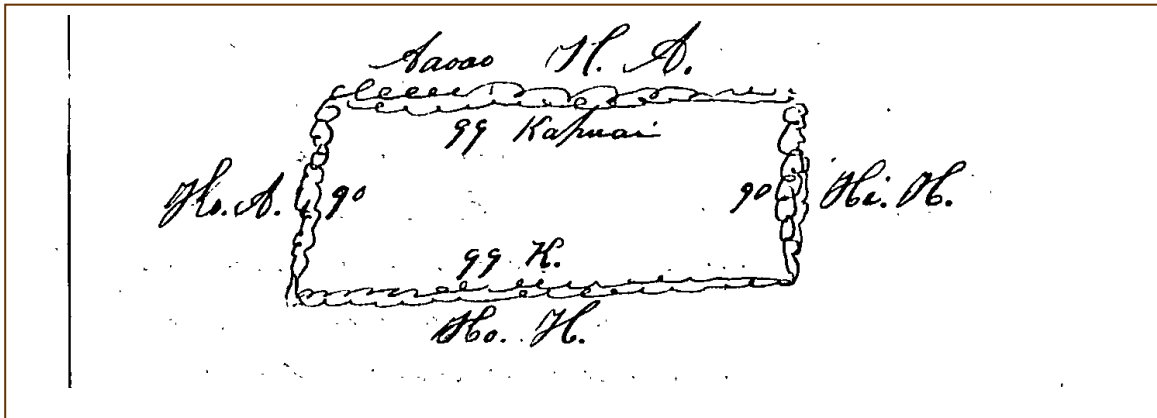 Aaoao H. A.
99 Kapuai
Ho. A. 90 90 Hi. H.
99 K.
Ho. H.